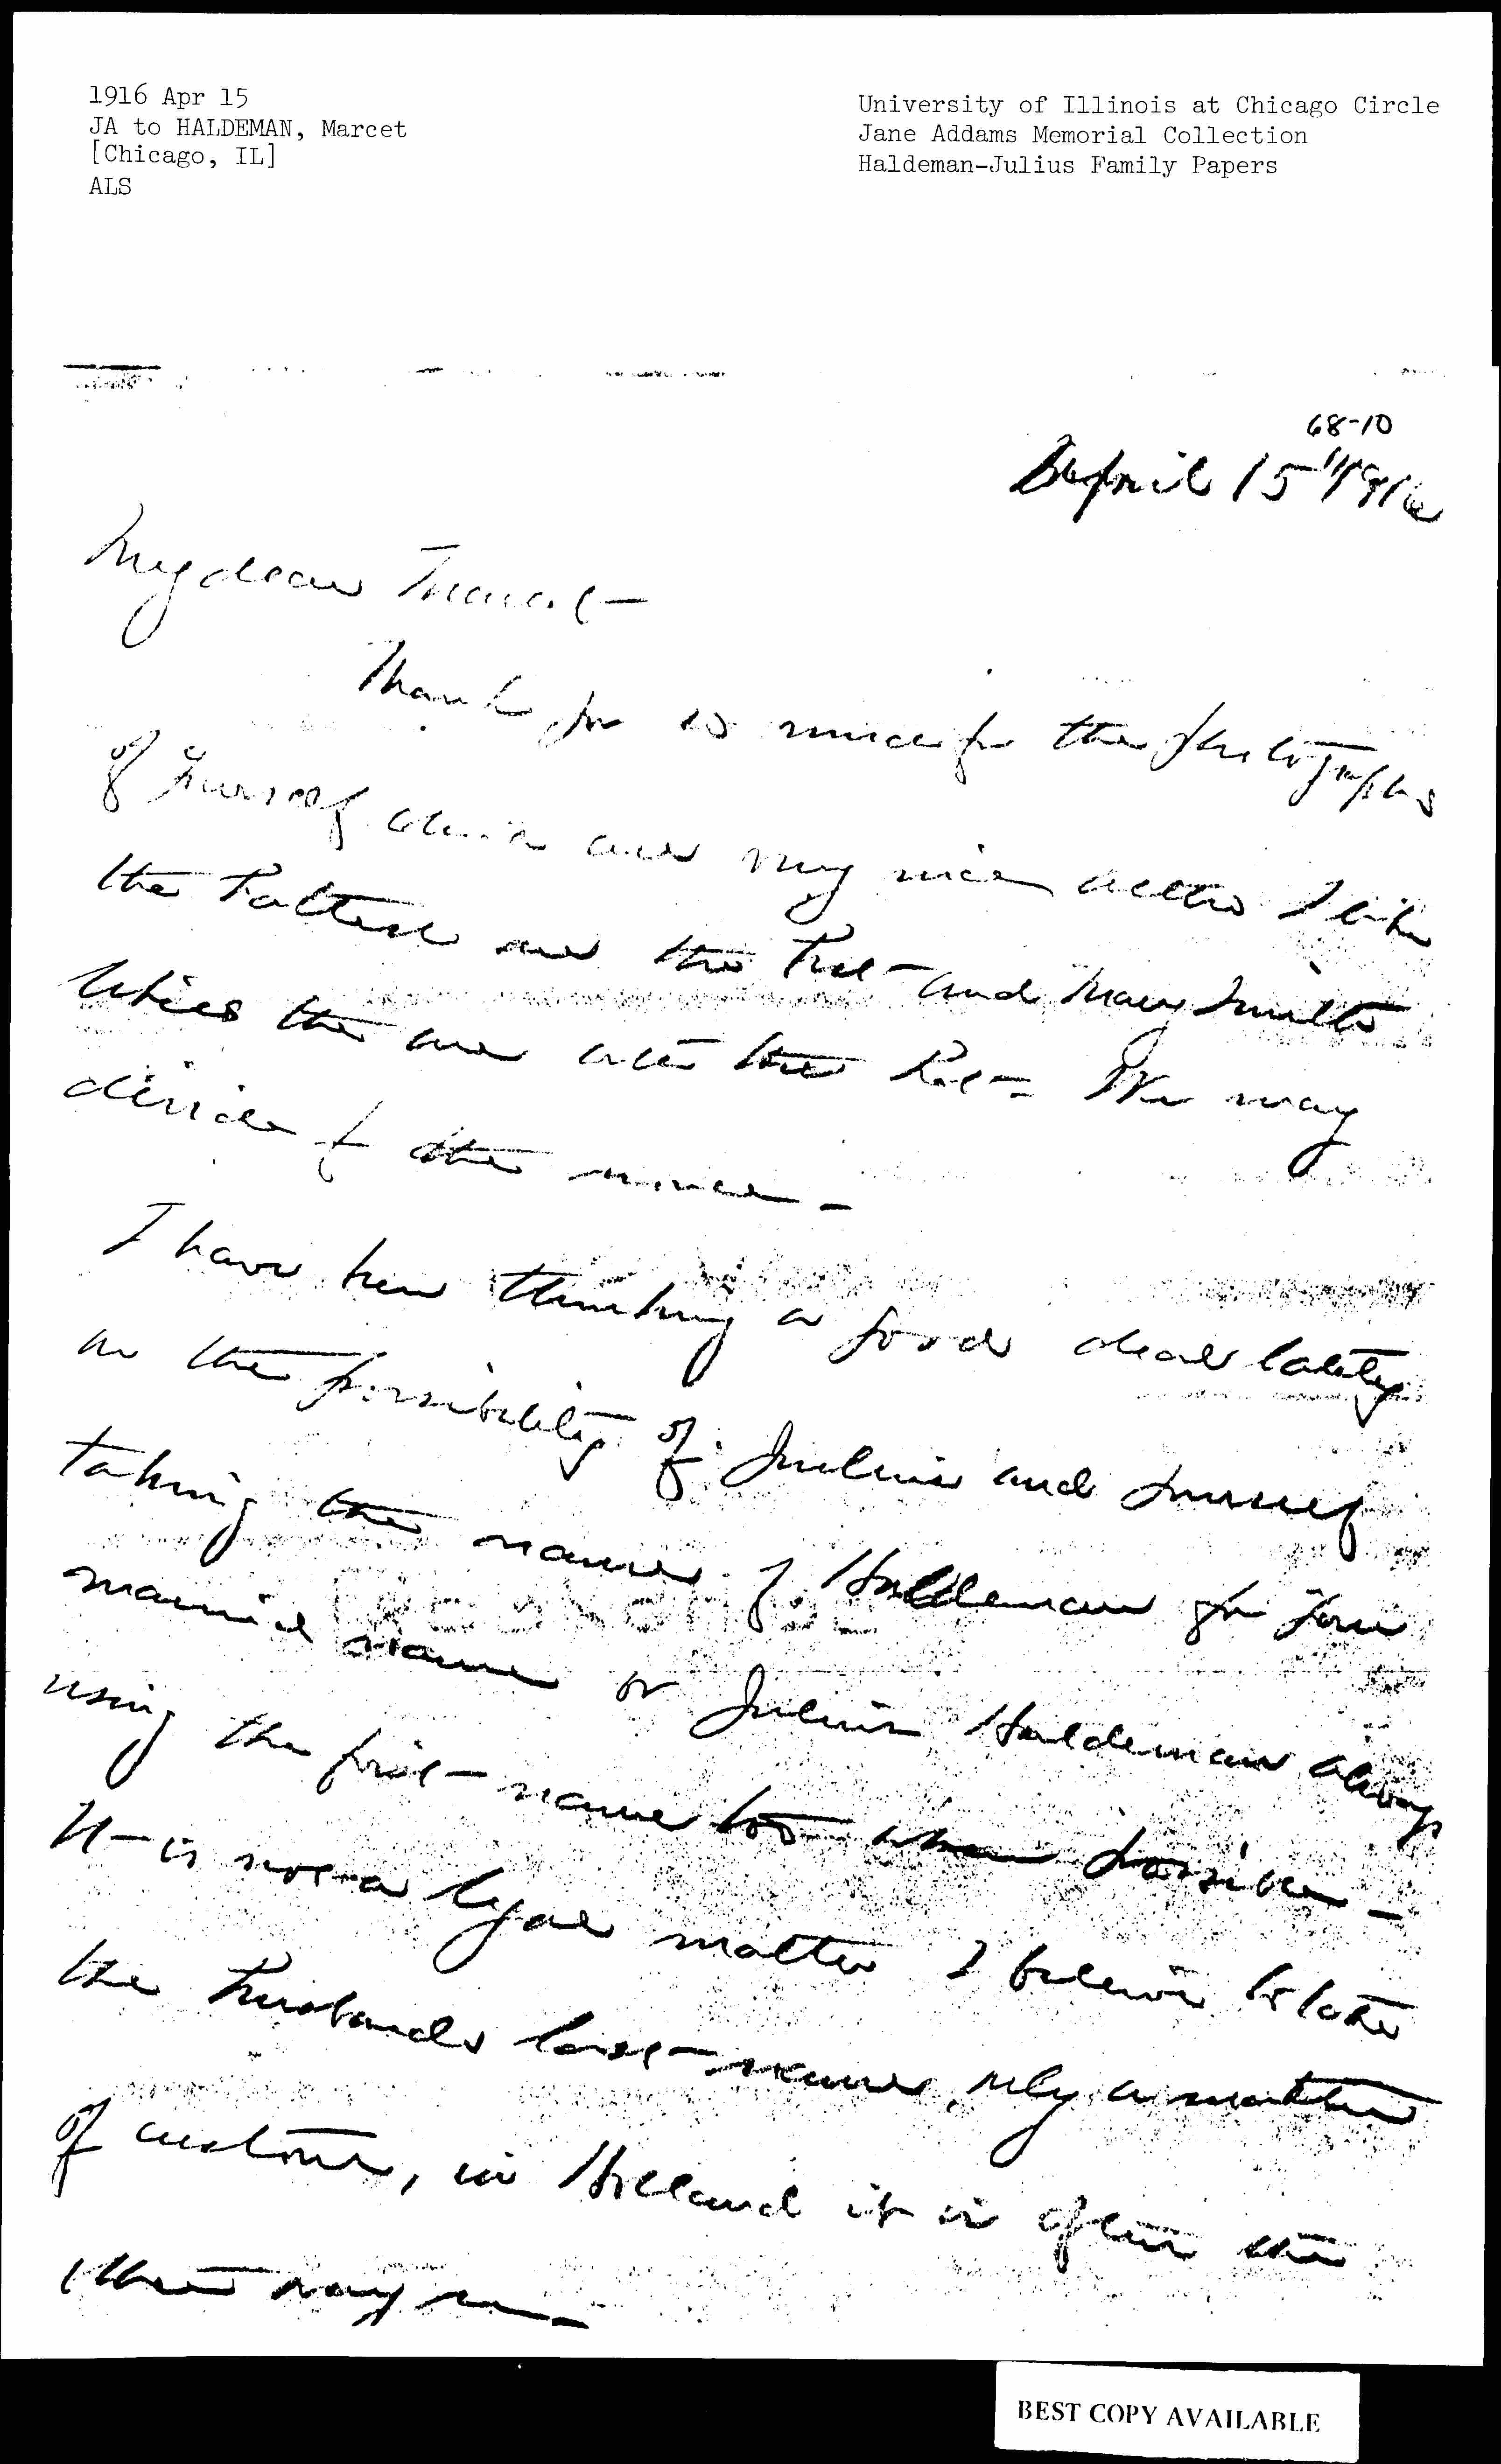 1916 Apr 15
JA to HALDEMAN, Marcet
[Chicago, IL]
ALS
University of Illinois at Chicago Circle
Jane Addams Memorial Collection
Haldeman-Julius Family Papers
68-10
April 15" 1916
My dear Marcet —
Thank you so much for the photographs
of yourself which are very nice
the and the hat — and Mary Smith
likes the one with the hat — We may
decide for the
I have been thinking a good deal lately
on the possibility of Julius and yourself
taking the name of Haldeman for your
married name or Julius Haldeman always
using the first name too when possible —
It is not a legal matter I believe to take
the husbands last name, only a matter
of custom, in Holland it is often the
other way
BEST COPY AVAILABLE